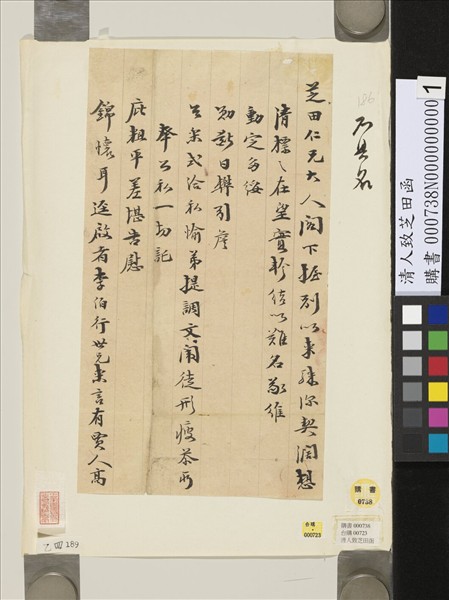 芝田仁兄大人閣下握別以來殊深契濶想
清標之在望實軫結以難名敬維
動定多綏
勛敭日懋引詹
公私一切託
庇粗平差堪告慰
錦懷耳逕啟者李伯行世兄來言有賈人高
不具名
186
清人致芝田函
購書 000738N000000000001
購書
0738
台購
000723
購書 000738
台購 00723
清人致芝田函
乙四189